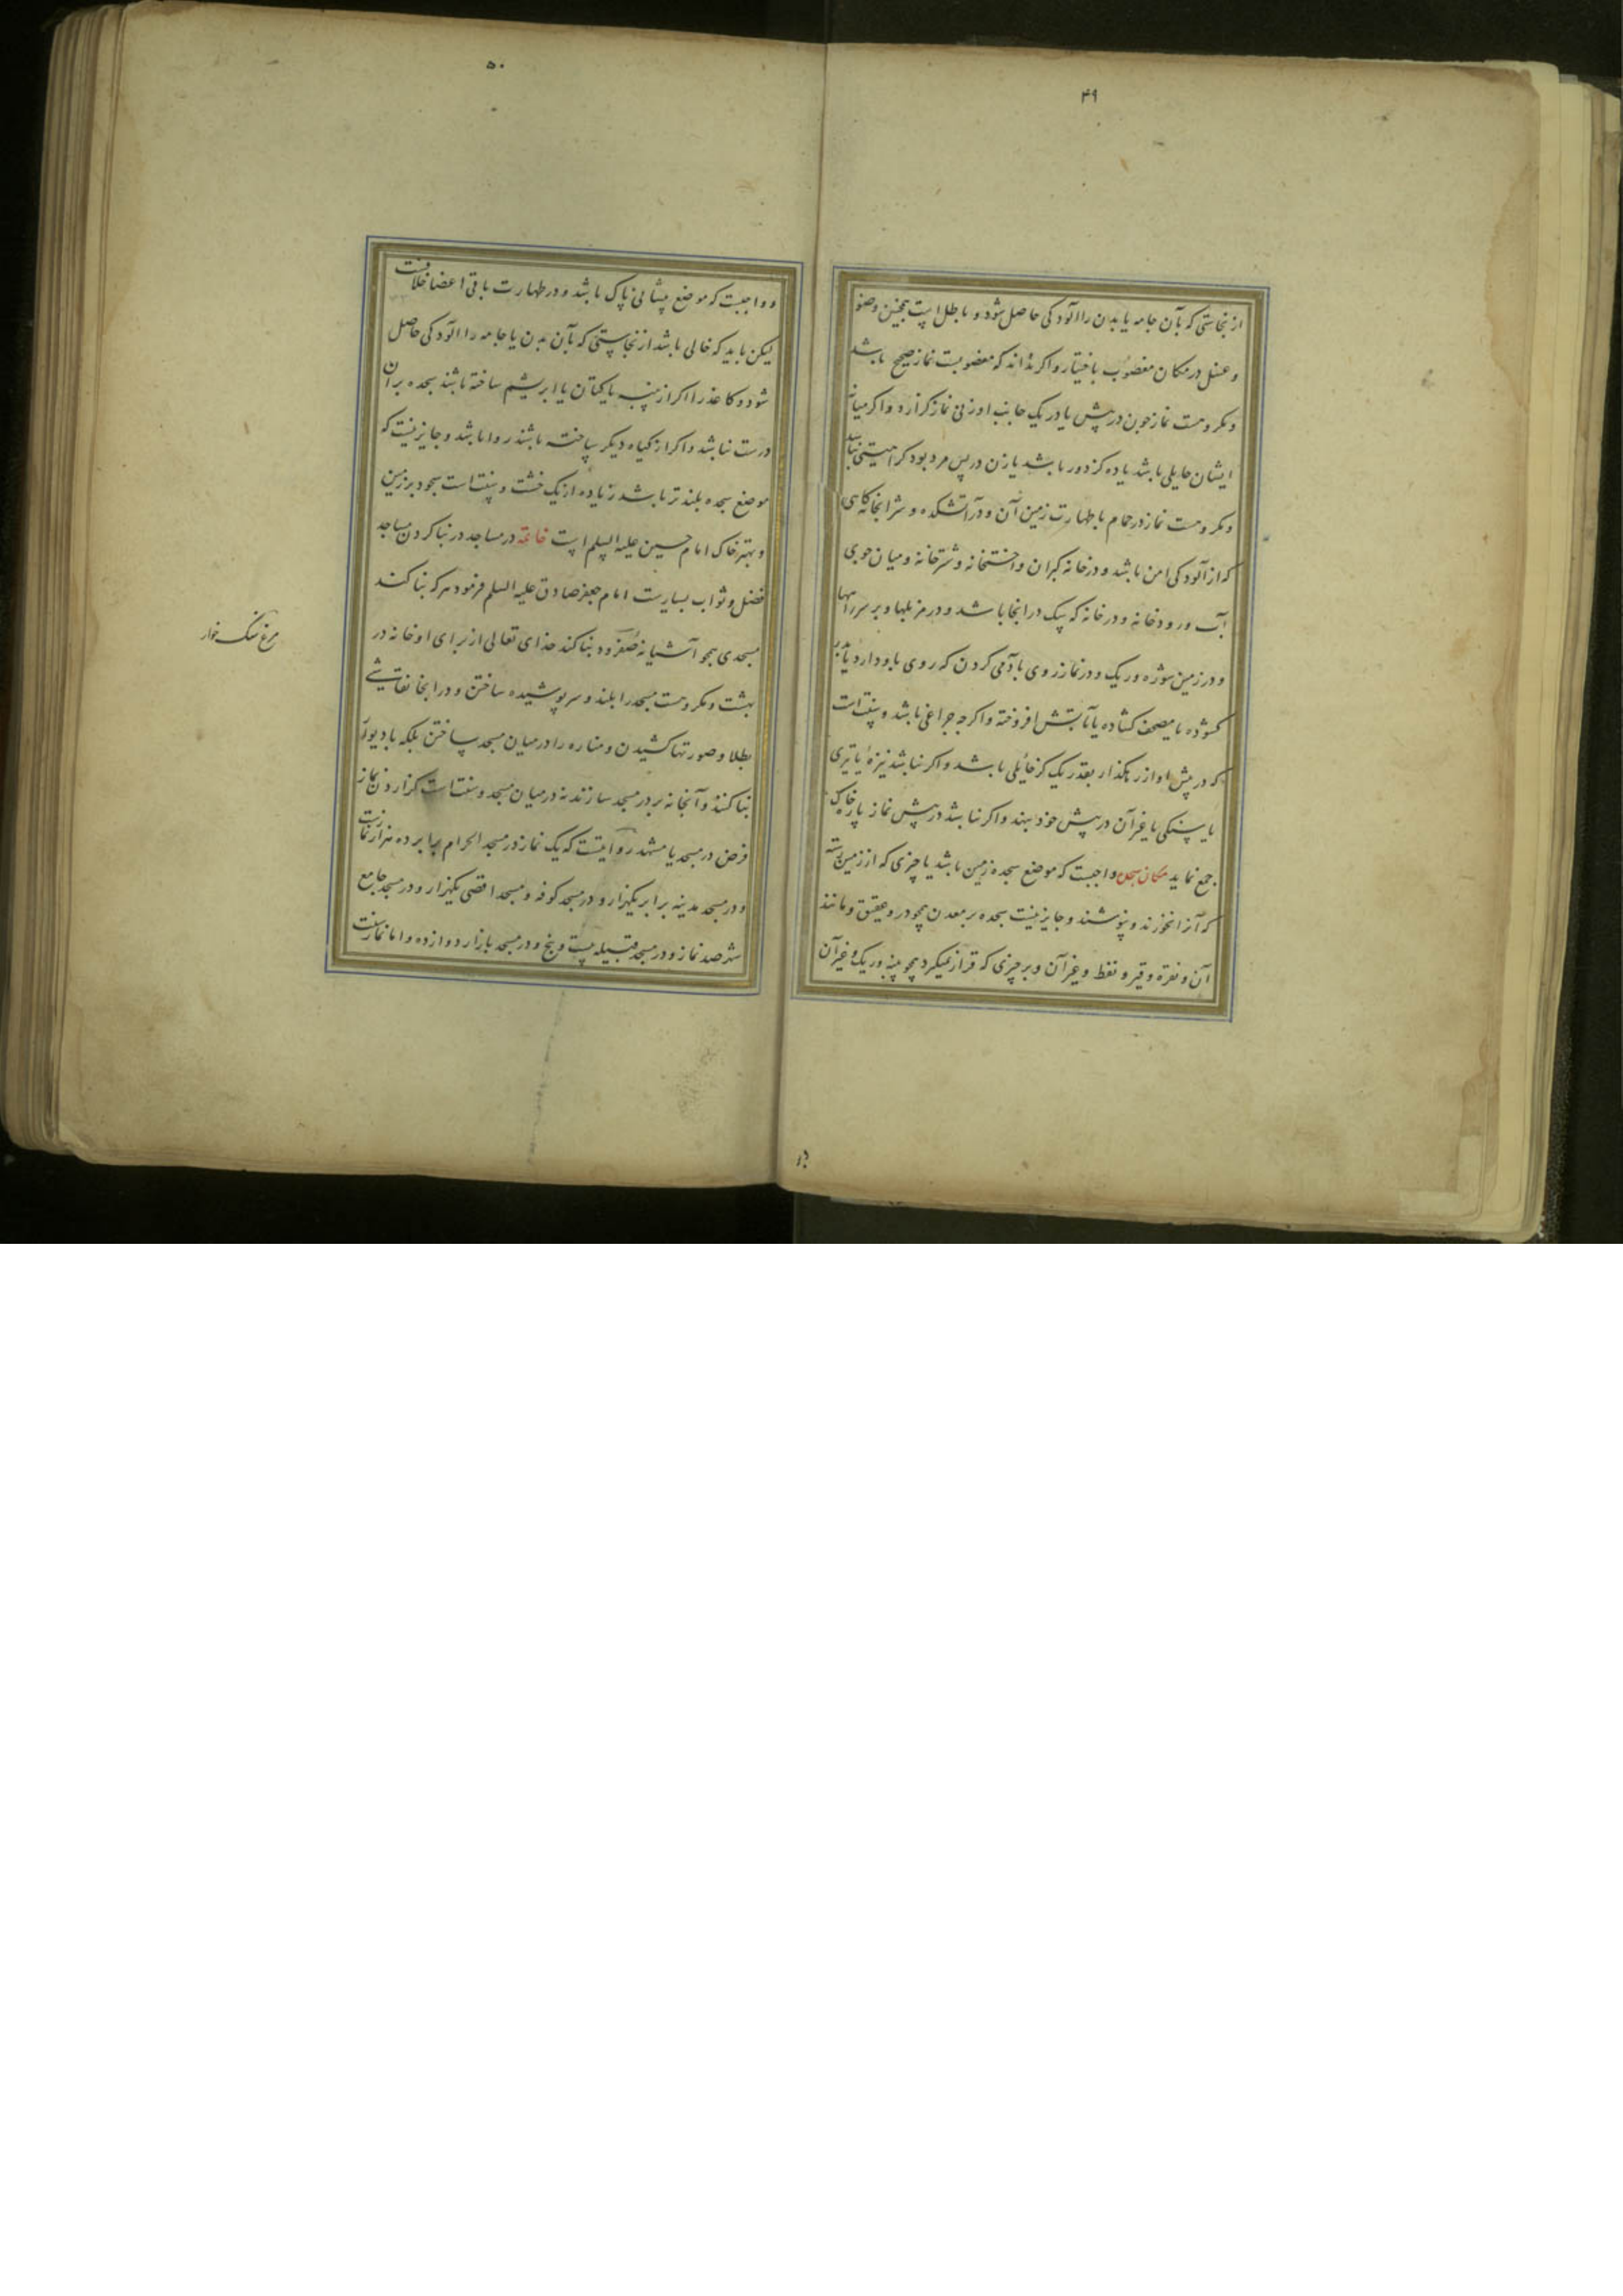 ۴۹
از نجاستی که بآن جامه یا بدن را الودکی حاصل شود و باطل است همچنین وضو
و غسل در مکان مغصوب باختیار و اکر نداند که مغصوبست نماز صحیح باشد
و مکروهست نماز چون در پیش یا در یک جانب او زنی نماز کزارد و اکر میان
ایشان حایلی باشد یا ده کز دور باشد یا زن در پس مرد بود کراهیتی نباشد
و مکروهست نماز در حمام با طهارت زمین آن و در آتشکده و شرابخانه کاهی
که از آلودکی امن باشد و در خانه کبران و شترخانه و میان جوی
آب و رودخانه و در خانه که سک در انجا باشد و در مزبلها و بر سر راهها
و در زمین شوره و ریک و در نماز روی بآدمی کردن که روی باو دارد یا بدر
کشوده یا مصحف کشاده یا آتش افروخته و اکرچه چراغی باشد و سنت است
که در پیش او از رهکذار بقدر یک کز حائلی باشد و اکر نباشد نیزه یا تیری
یا سنکی یا غیر آن در پیش خود بنهد و اکر نباشد در پیش نماز پاره خاک
جمع نماید مکان سجده واجبست که موضع سجده زمین باشد یا چیزی که از زمین رسته
که آنرا نخورند و نپوشند و جایز نیست سجده بر معدن همچو در و عقیق و مانند
آن و نقره و قیر و نفط و غیر آن و بر چیزی که قرار نمیکیرد همچو پنبه و ریک و غیر آن
۵۰
و واجبست که موضع پیشانی پاک باشد و در طهارت باقی اعضا خلافست
لیکن باید که خالی باشد از نجاستی که بآن بدن یا جامه را الودکی حاصل
شود و کاغذ را اکر از پنبه یا کتان یا ابریشم ساخته باشند سجده بر آن
درست نباشد و اکر از کیاه دیکر ساخته باشند روا باشد و جایز نیست که
موضع سجده بلندتر باشد زیاده از یک خشت و سنت است سجود بر زمین
و بهتر خاک امام حسین علیه السلم است خاتمة در مساجد در بنا کردن مساجد
فضل و ثواب بسیارست امام جعفر صادق علیه السلم فرمود هر که بنا کند
مسجدی همچو آشیانه بنا کند خدای تعالی از برای او خانه در
بهشت و مکروهست مسجد را بلند و سرپوشیده ساختن و در انجا نقاشی
بطلا و صورتها کشیدن و مناره را در میان مسجد ساختن بلکه با دیوار
بنا کنند و آبخانه بر در مسجد سازند نه در میان مسجد و سنت است کزاردن نماز
فرض در مسجد یا مشهد روآیتست که یک نماز در مسجد الحرام برابر ده هزار نمازست
و در مسجد مدینه برابر یکهزار و در مسجد کوفه و مسجد اقصی یکهزار و در مسجد جامع
نماز و در مسجد قبیله بیست و پنج و در مسجد بازار دوازده و اما نماز سنت
مرغ سنک خوار